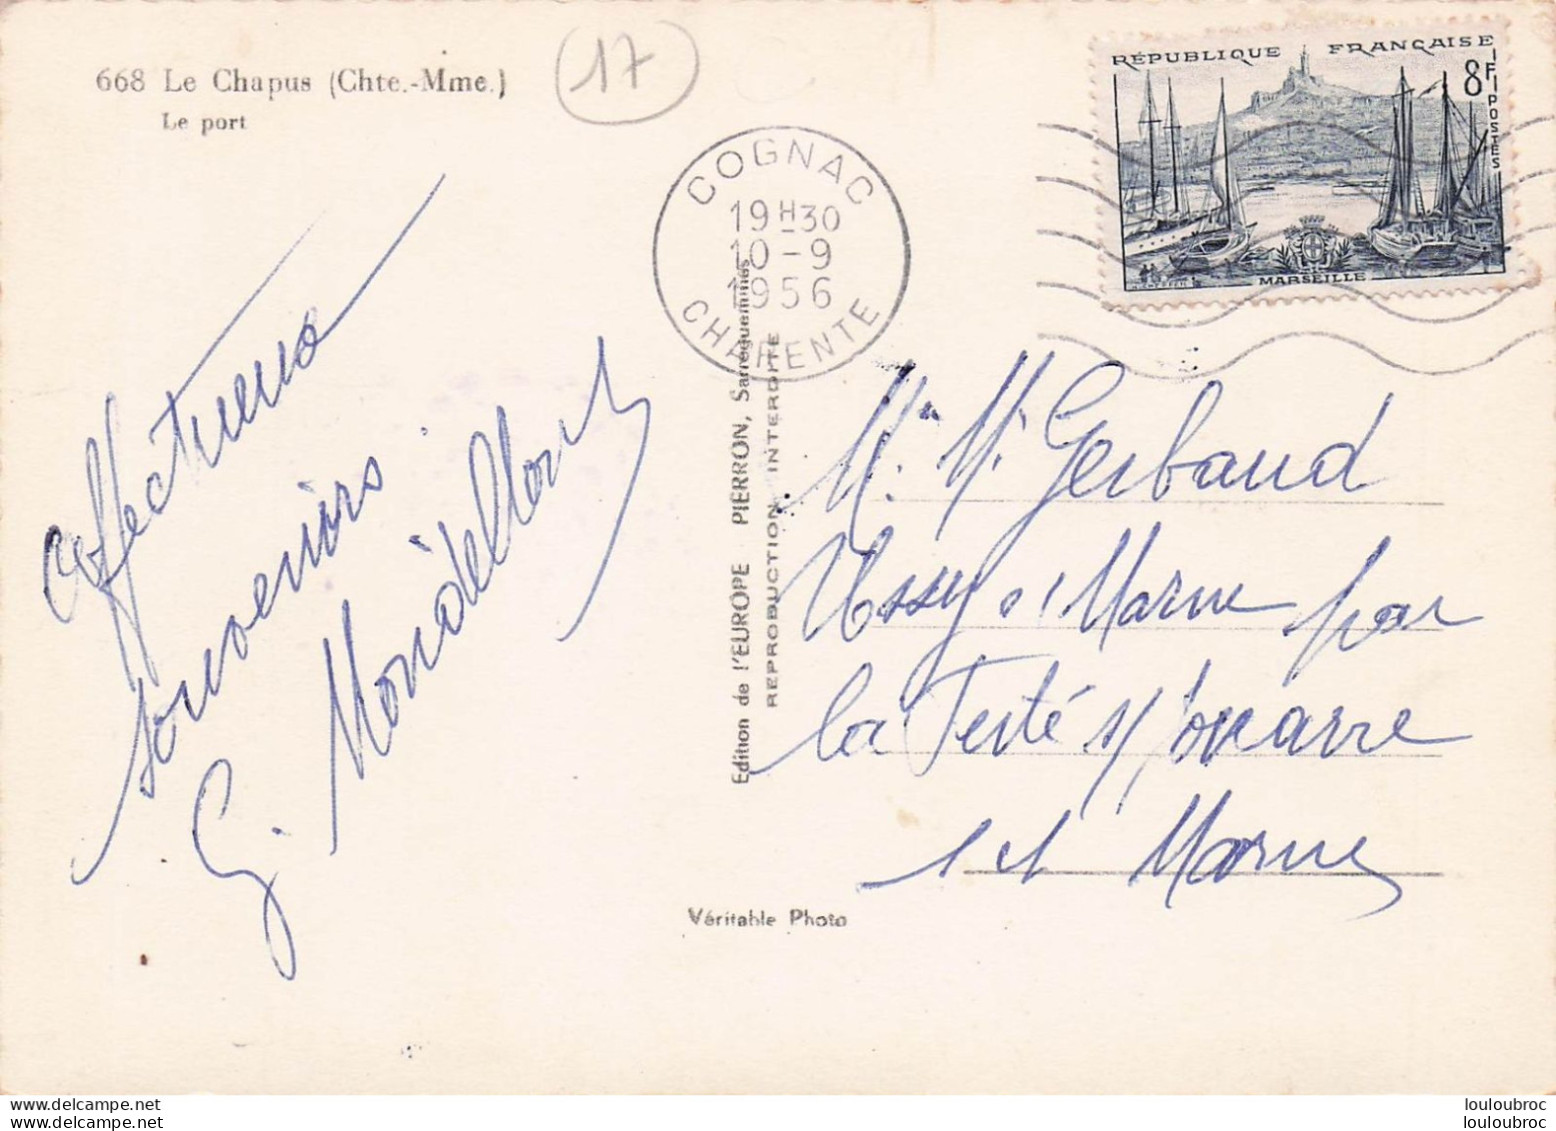 668 Le Chapus (Chte.-Mme.)
Le port
17
COGNAC
19 H 30
10 - 9
1956
CHARENTE
RÉPUBLIQUE FRANÇAISE
8F
POSTES
MARSEILLE
Affectueux
souvenirs
G.
Edition de l'EUROPE PIERRON, Sarreguemines
REPRODUCTION INTERDITE
Gerbaud
Ussy s/ Marne par
la Ferté s/ Jouarre
s et Marne
Véritable Photo
www.delcampe.net
louloubroc
www.delcampe.net
louloubroc